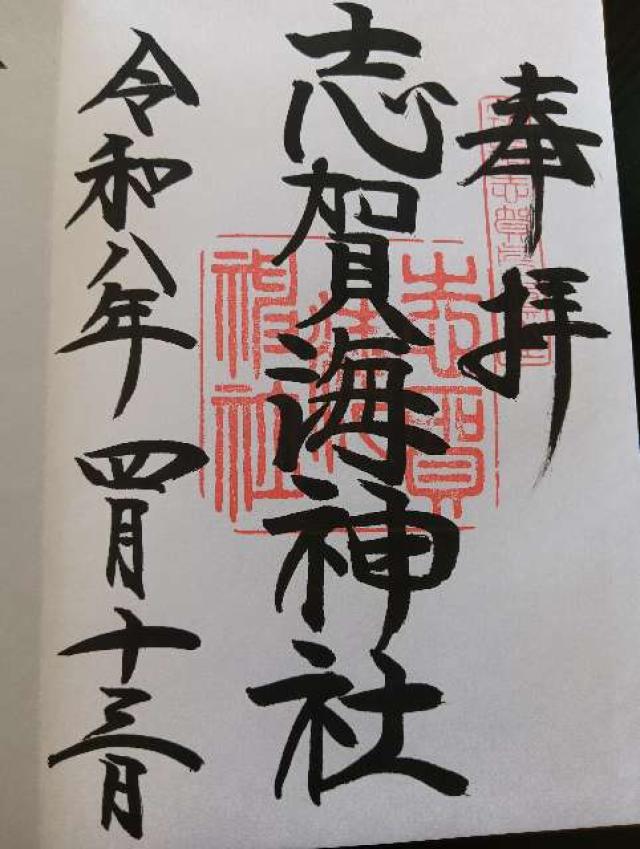 奉拝
志賀海神社
志賀海神社
令和八年四月十三日